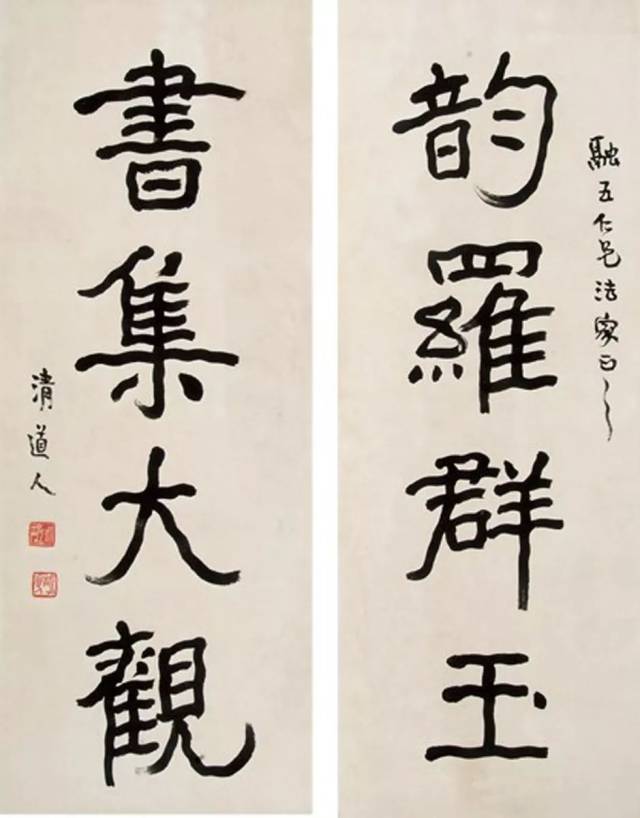 融五仁兄法家正之
韵羅群玉
書集大觀
清道人